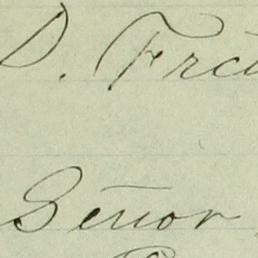 D. Fr
Señor